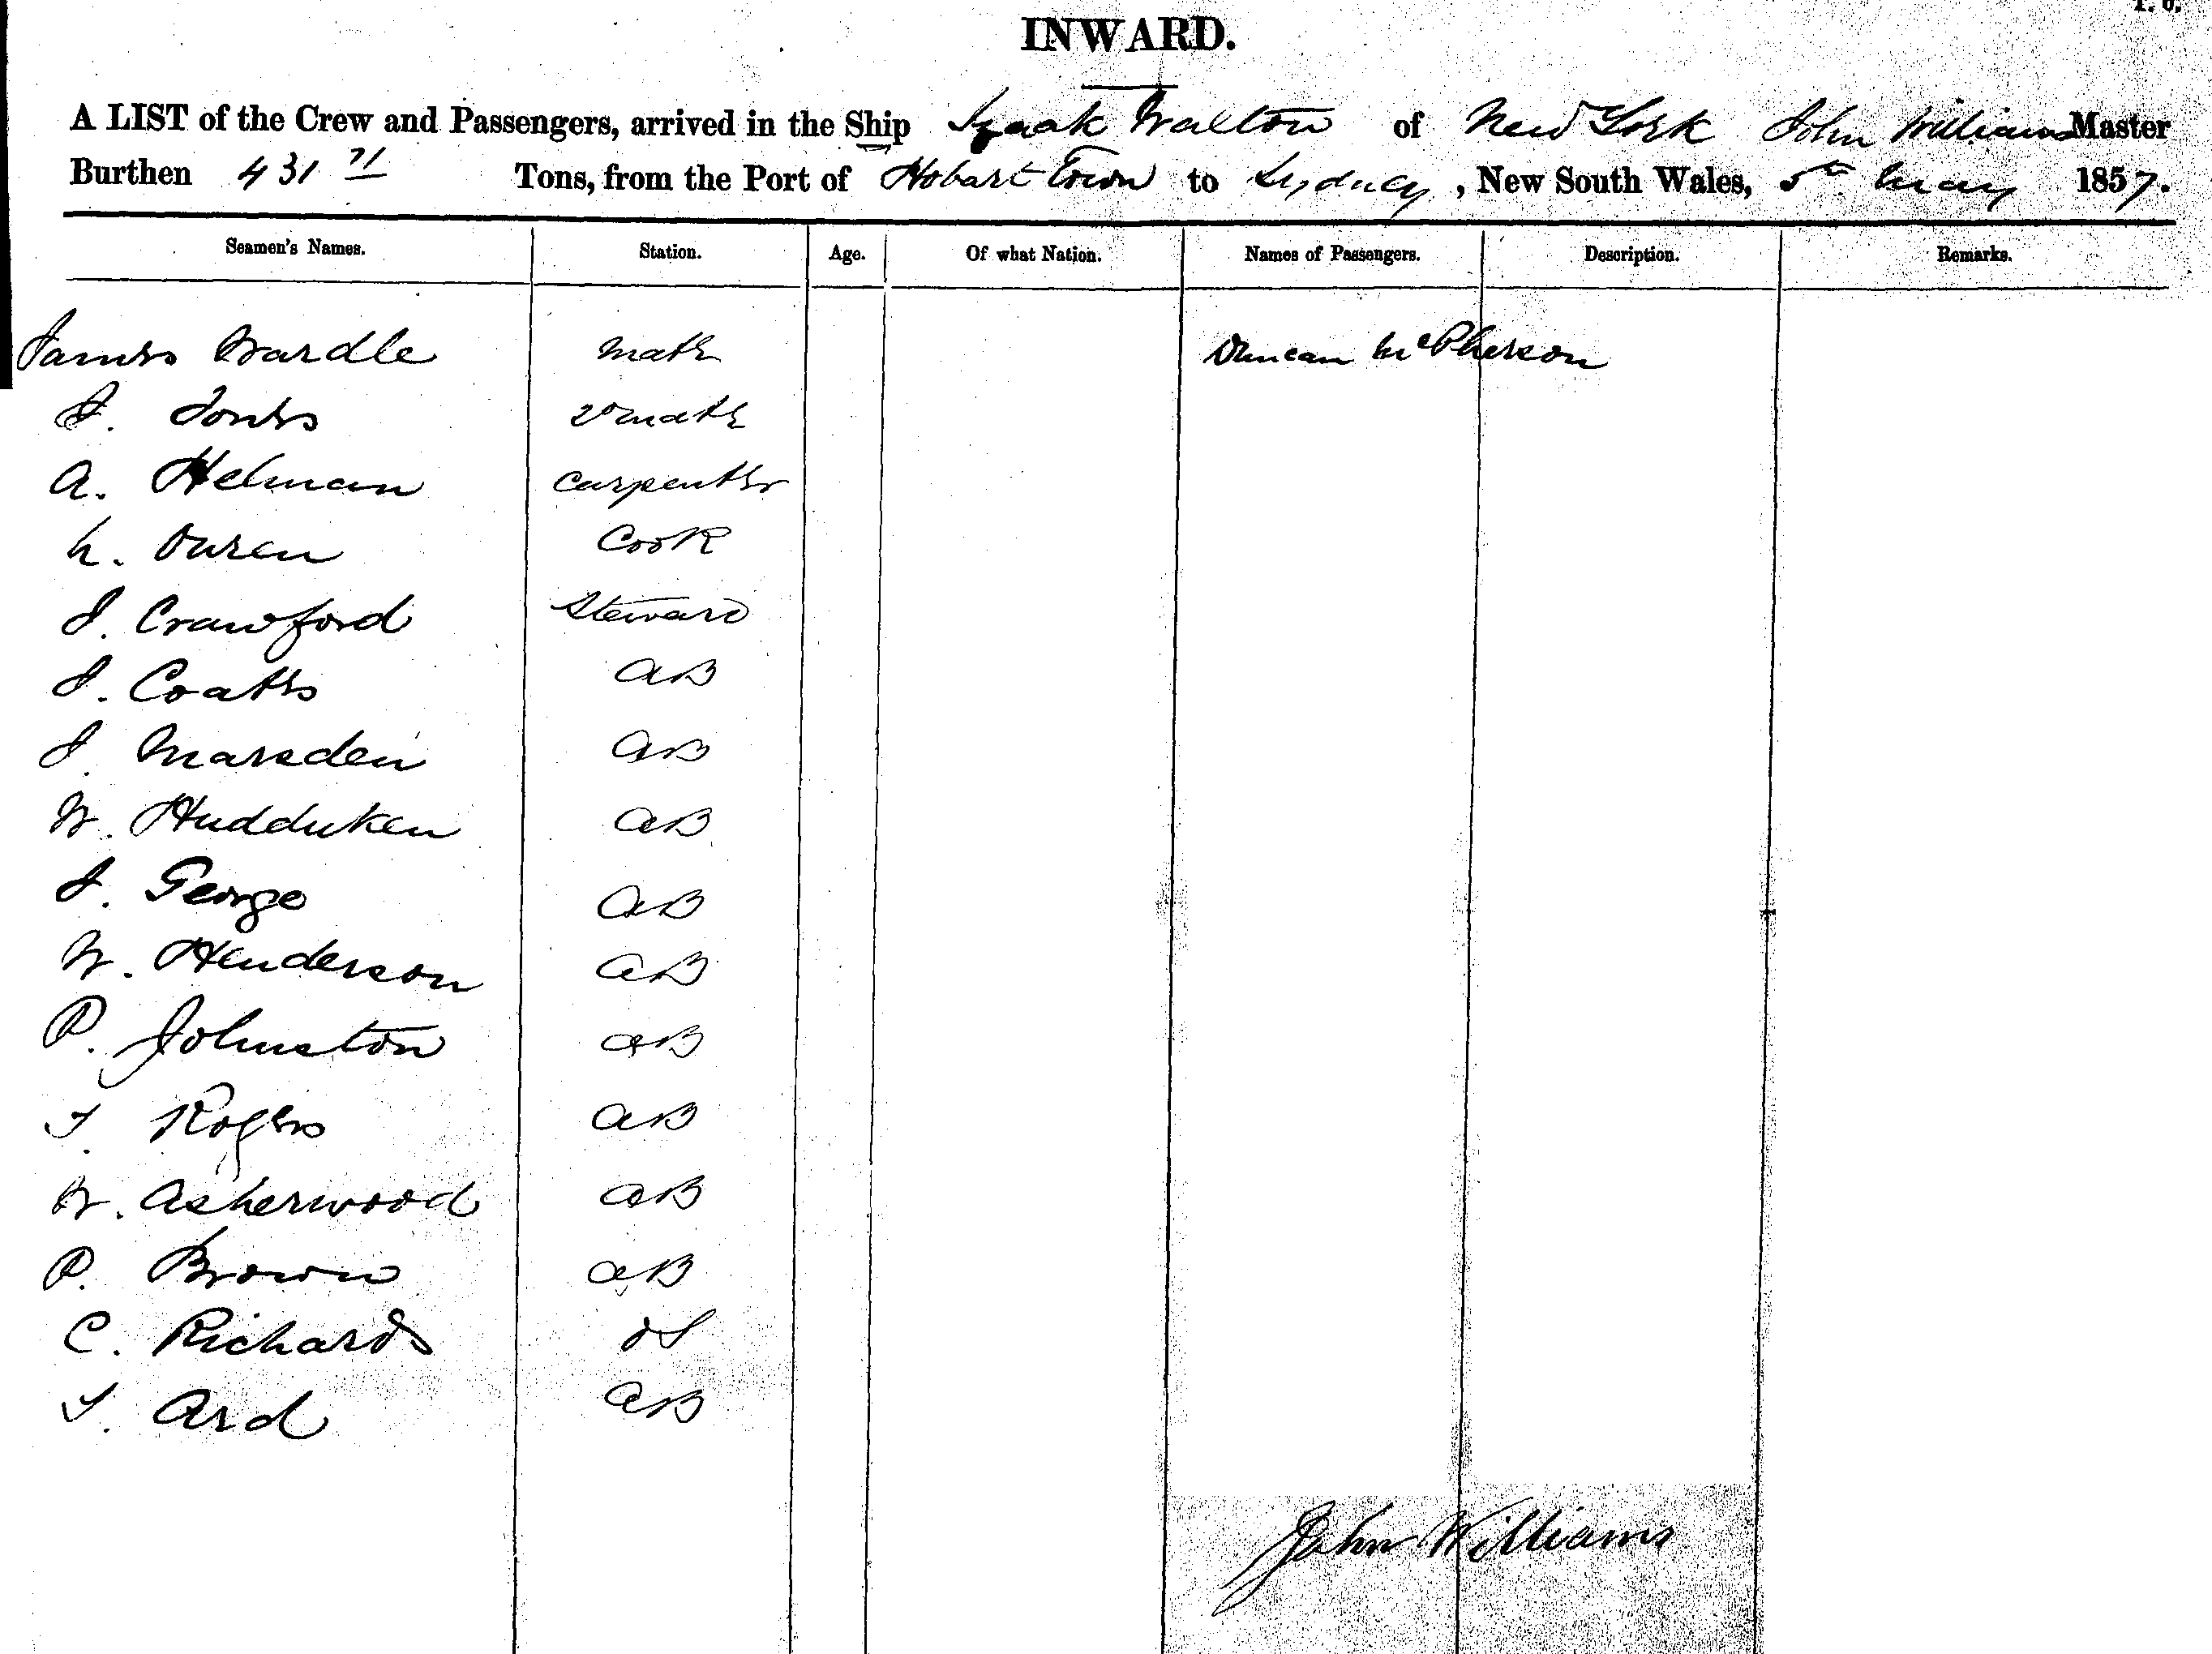 INWARD.
A LIST of the Crew and Passengers, arrived in the Ship Izaak Walton of New York John Williams Master
Burthen 431 71 Tons, from the Port of Hobart Town to Sydney, New South Wales, 5th May 1857.
Seamen's Names. Station. Age. Of what Nation. Names of Passengers. Description. Remarks.
James Wardle Mate Duncan McPherson
J. Jones 2d Mate
A. Helman Carpenter
h. Owen Cook
J. Crawford Steward
J. Coates AB
J. Marsden AB
W. Hudduken AB
J. George AB
W. Henderson AB
P. Johnston AB
T. Rogers AB
W. Asherwood AB
P. Brown AB
C. Richards OS
T. Ard AB
John Williams